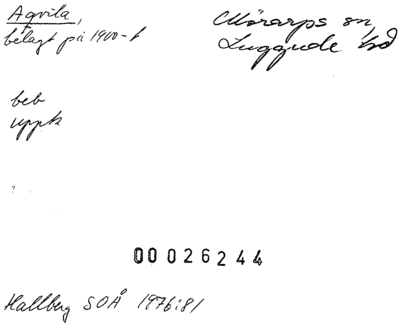 Aqvila,
belagt på 1900-t
Mörarps sn,
Luggude hd
beb
uppk
00026244
Hallberg SOÅ 1976:81